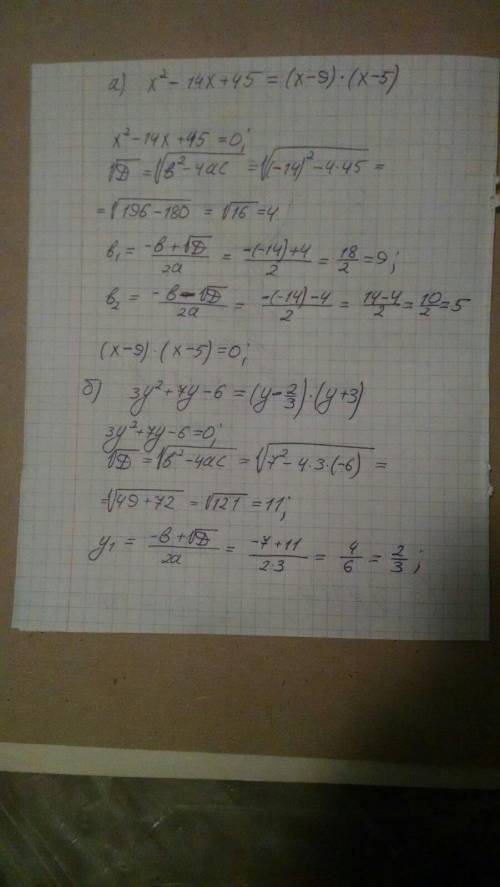 а) x² - 14x + 45 = (x-9)·(x-5)
x² - 14x + 45 = 0;
√D = √(в² - 4ac) = √((-14)² - 4·45) =
= √(196-180) = √16 = 4
в₁ = (-в + √D)/2a = (-(-14)+4)/2 = 18/2 = 9;
в₂ = (-в - √D)/2a = (-(-14)-4)/2 = (14-4)/2 = 10/2 = 5
(x-9)·(x-5) = 0;
б) 3y² + 7y - 6 = (y - 2/3)·(y+3)
3y² + 7y - 6 = 0;
√D = √(в² - 4ac) = √(7² - 4·3·(-6)) =
= √(49+72) = √121 = 11;
y₁ = (-в + √D)/2a = (-7+11)/(2·3) = 4/6 = 2/3;